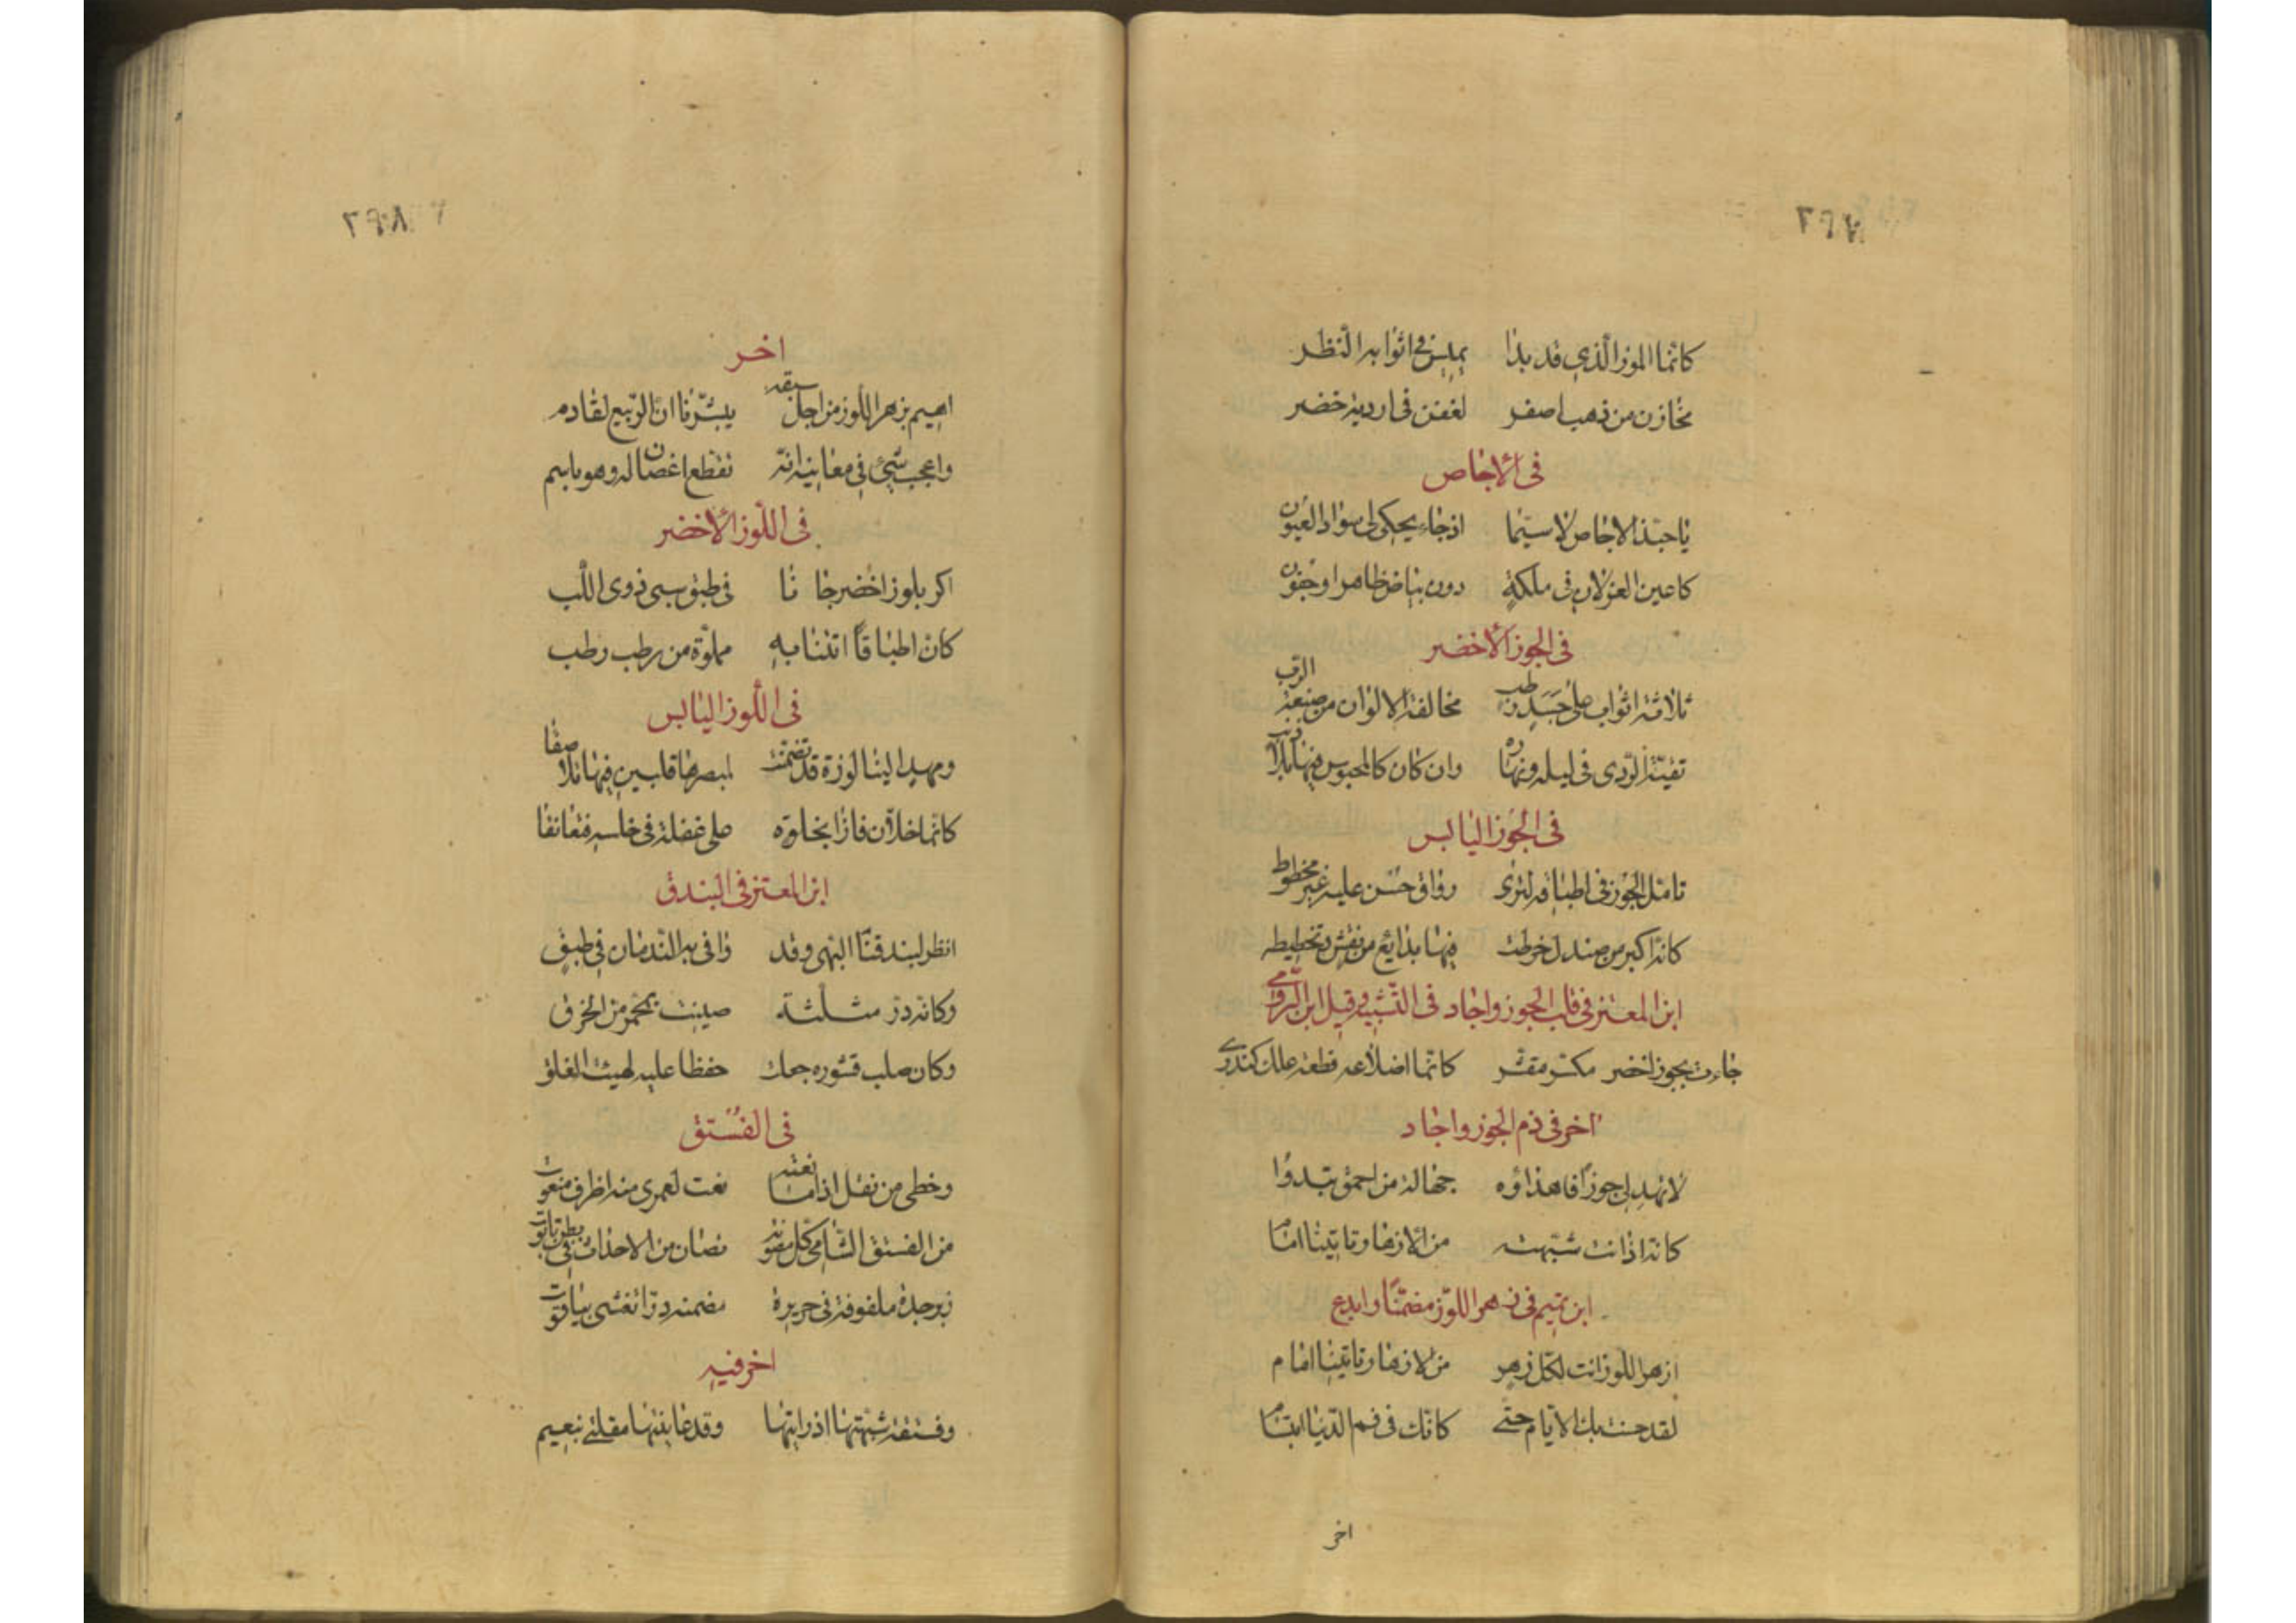 كانما الموز الذي قد بدا يميس في اثوابه النظر
مخازن من ذهب اصفر لففن في اردية خضر
في الاجاص
يا حبذا الاجاص لا سيما اذ جاء يحكي لي سواد العيون
كاعين الغزلان في ملكة دون بياض ظاهرا وجفون
في الجوز الاخضر
ثلاثة اثواب على جسد رطب مخالفة الالوان من صنعة الرب
تقيه الردى في ليله ونهاره وان كان كالمحبوس فيها بلا ذنب
في الجوز اليابس
تامل الجوز في اطباقه لترى رواق حسن عليه غير مخطوط
كانه اكر من صندل خرطت فيها بدايع من نقش وتخطيط
ابن المعتز في قلب الجوز واجاد في التشبيه وقيل ابن الرومي
جاءت بجوز اخضر مكسر مقشر كانما اضلاعه قطعة علك كندر
اخر في ذم الجوز واجاد
لا تهد لي جوزا فاهداؤه جهالة من احمق تبدوا
كانه اذ انت شبهته
ابن تميم في زهر اللوز مضمنا وابدع
ازهر اللوز انت لكل زهر من الازهار تاتينا امام
لقد حسنت بك الايام حتى كانك في فم الدنيا ابتسام
اخر
٢٩٨
اخر
اهيم بزهر اللوز من اجل سبقه يبشرنا ان الربيع لقادم
واعجب شيء في معانيه انه تقطع اغصان له وهو باسم
في اللوز الاخضر
اكر بلوز اخضر جانا في طبق يسبي ذوى اللب
كان اطباقا اتتنا به مملوة من رطب رطب
في اللوز اليابس
ومهد الينا لوزة قد تضمنت لمبصرها قلبين فيها تلاصقا
كانما خلان فازا بخلوة على غفلة في خلسه فتعانقا
ابن المعتز في البندق
انظر لبندقنا البهي وقد وافى به الندمان في طبق
وكانه در مثلثة صينت بمحمر من الخرق
وكان صلب قشوره جعلت حفظا عليه لهيئة الغلق
في الفستق
وحظي من نقل اذا ما نعته نعت لعمري منه اظرف منعوت
من الفستق الشامي كل مصونة تصان من الاحداث في بطن تابوت
زبرجدة ملفوفة في حريرة مضمنه درا تغشى بياقوت
اخر فيه
وفستقة شبهتها اذ رايتها وقد عاينتها مقلتي بنعيم